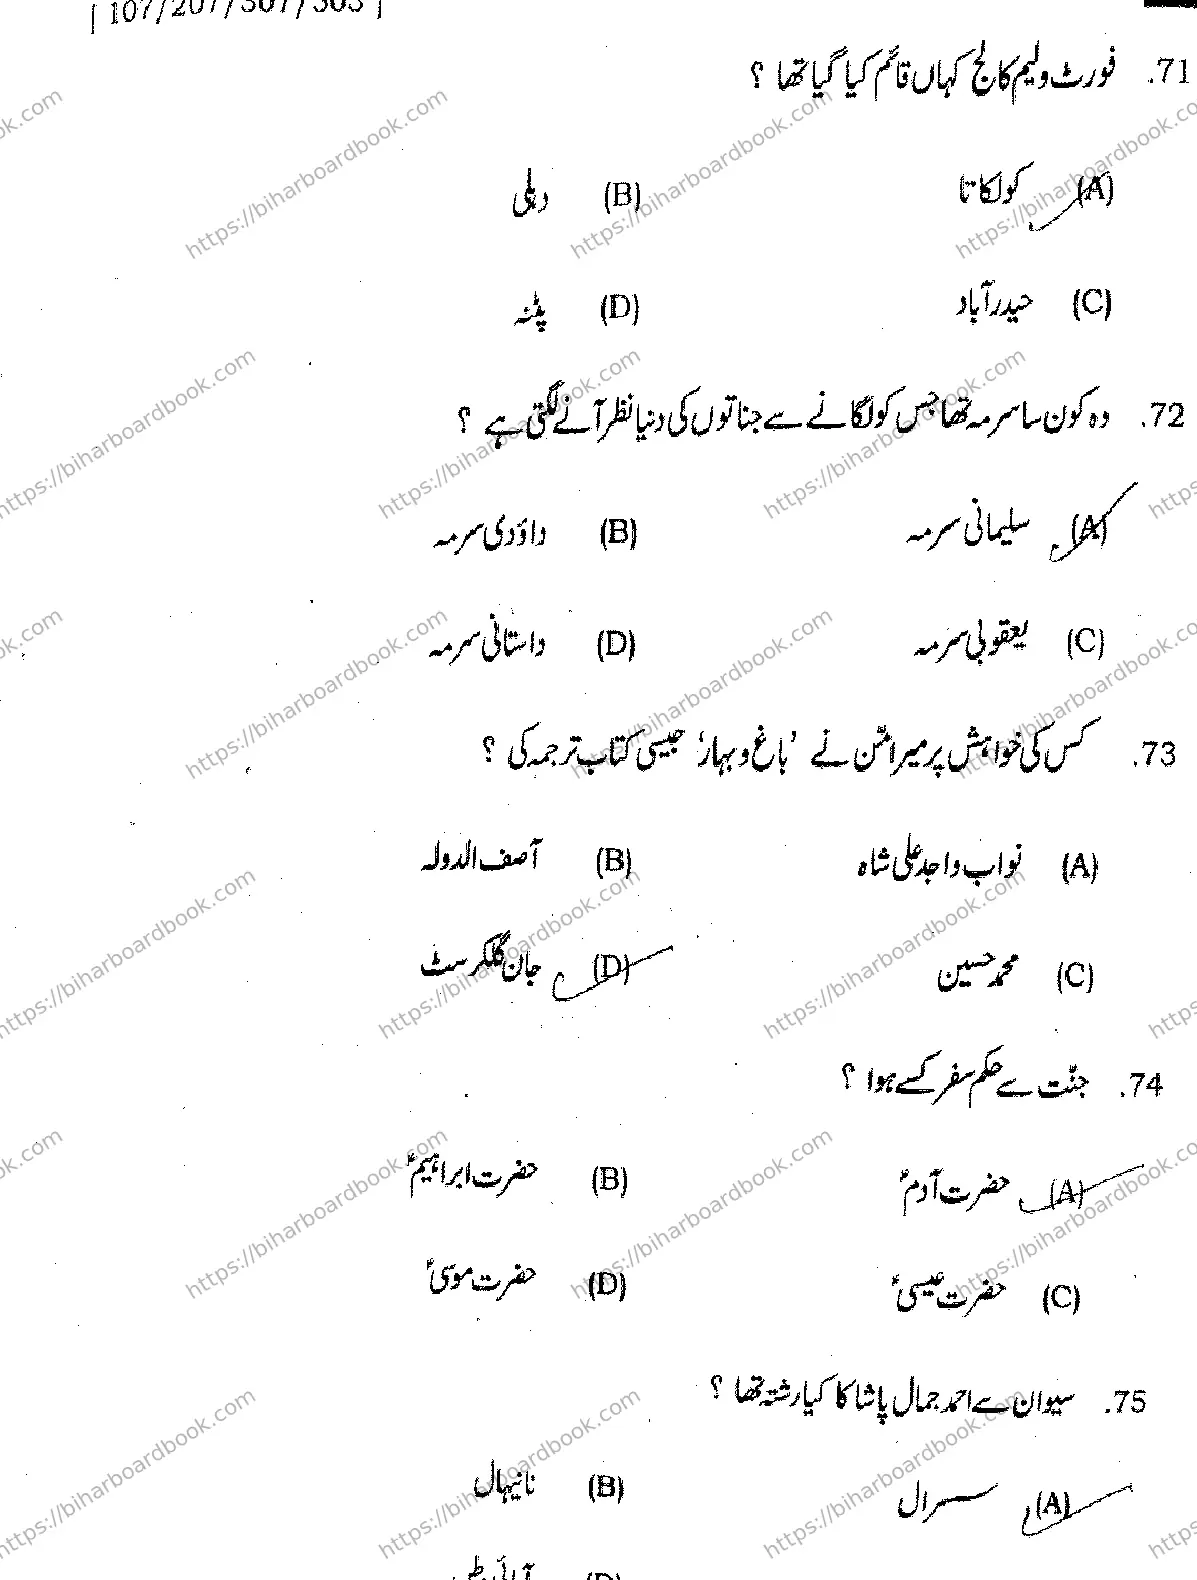 [ 107/207/307/503 ]
71. فورٹ ولیم کالج کہاں قائم کیا گیا تھا ؟
(A) کولکاتا (B) دہلی
(C) حیدرآباد (D) پٹنہ
72. وہ کون سا سرمہ تھا جس کو لگانے سے جناتوں کی دنیا نظر آنے لگتی ہے ؟
(A) سلیمانی سرمہ (B) داؤدی سرمہ
(C) یعقوبی سرمہ (D) داستانی سرمہ
73. کس کی خواہش پر میر امّن نے 'باغ و بہار' جیسی کتاب ترجمہ کی ؟
(A) نواب واجد علی شاہ (B) آصف الدولہ
(C) محمد حسین (D) جان گلکرسٹ
74. جنّت سے حکم سفر کسے ہوا ؟
(A) حضرت آدمؑ (B) حضرت ابراہیمؑ
(C) حضرت عیسیٰؑ (D) حضرت موسیٰؑ
75. سیوان سے احمد جمال پاشا کا کیا رشتہ تھا ؟
(A) سسرال (B) نانیہال
(D)
https://biharboardbook.com